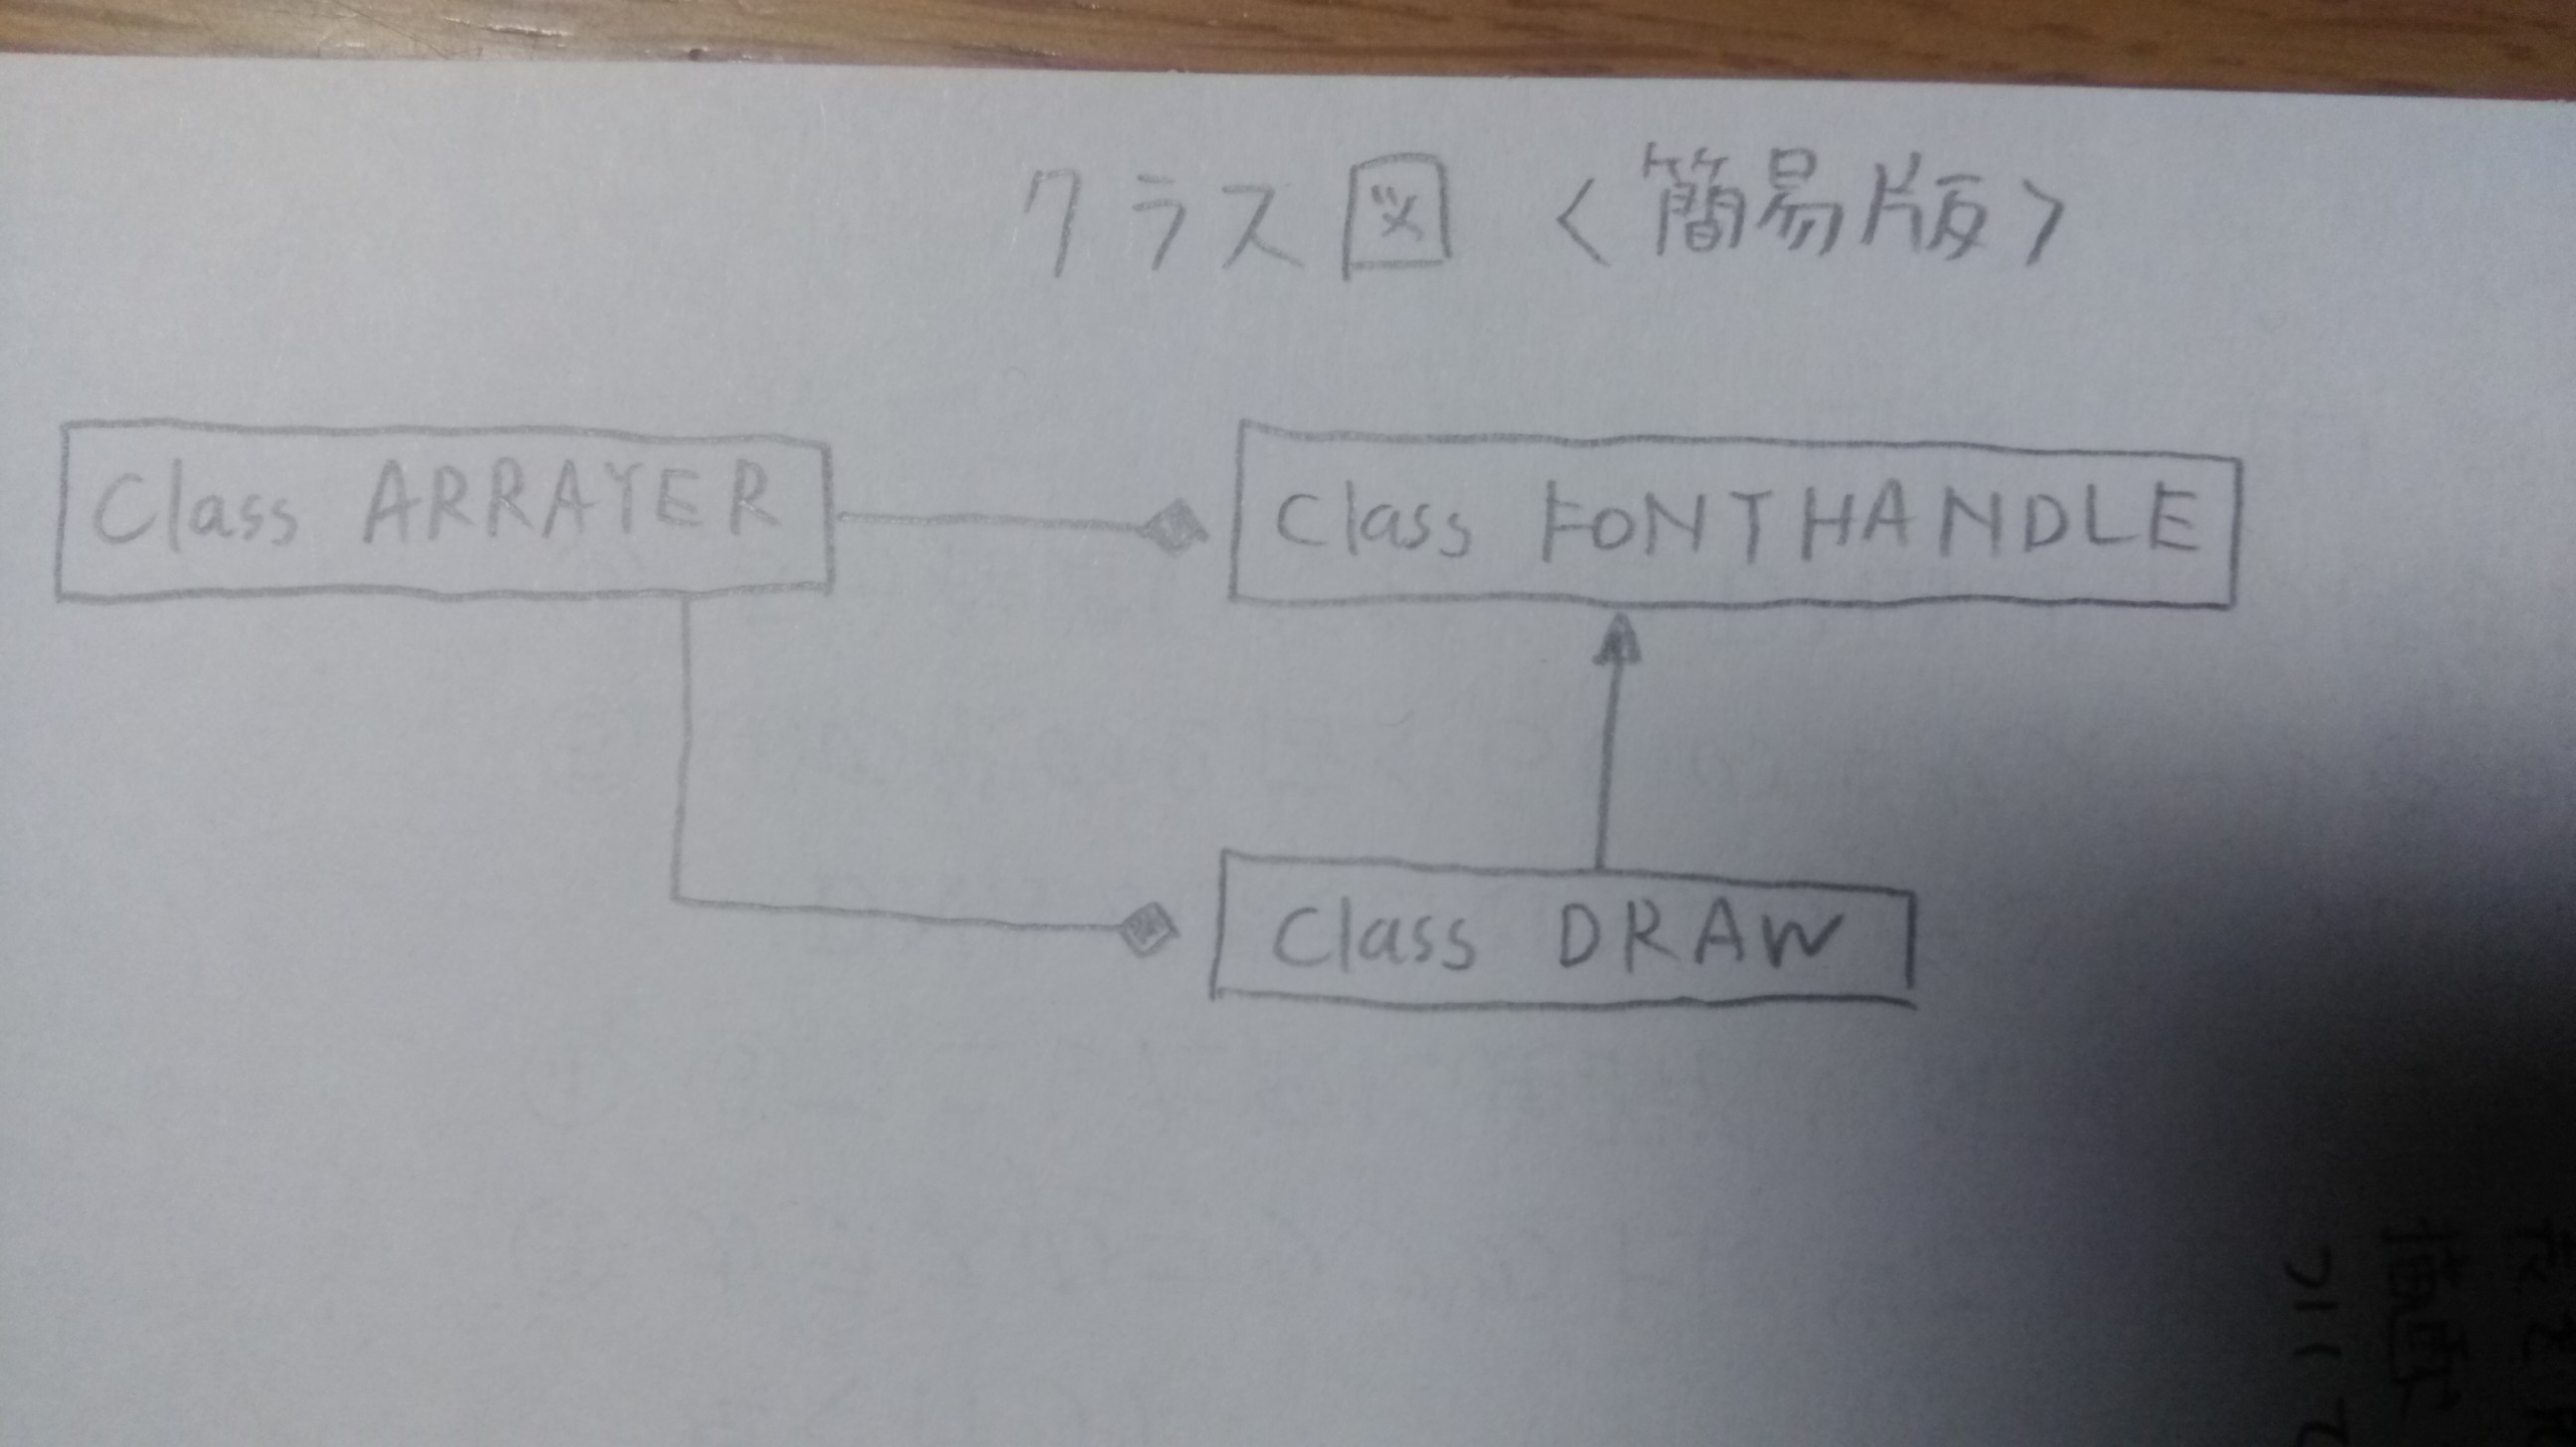 クラス図 <簡易版>
Class ARRAYER
Class FONTHANDLE
Class DRAW